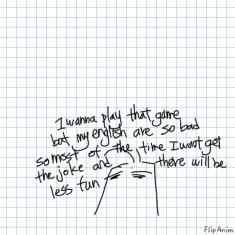 I wanna play that game
but my english are so bad
so most of the time I wont get
the joke and there will be
less fun
FlipAnim